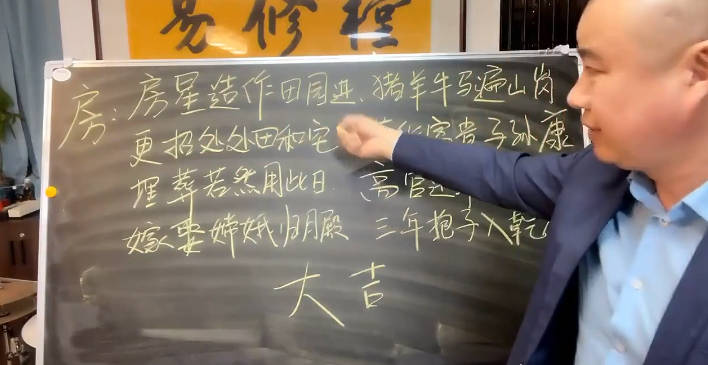 易修
房：房星造作田园进、猪羊牛马遍山岗
更招处处田和宅 富贵子孙康
埋葬若然用此日 高官进
嫁娶嫦娥归月殿 三年抱子入
大吉